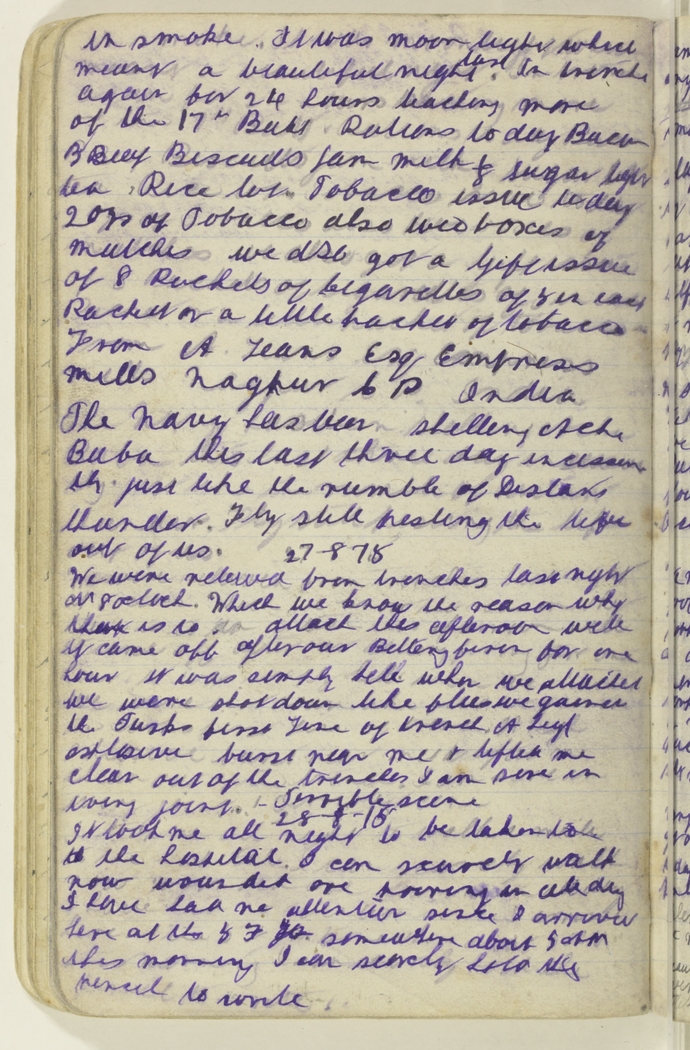 in smoke. It was moon light which
meant a beautiful night last. In trenche
again for 24 hours teaching more
of the 17th Batt. Rations today Bacon
B Beef Biscuits jam milk 1/8 sugar
tea. Rice lot. Tobacco issue today
2 ozs of Tobacco also two boxes of
matches we also got a gift issue
of 8 Packets of cigarettes of 5 in each
Packet or a little packet of tobacco
From A Jeans Esq Empress
Mills Nagpur C P India
The Navy has been shelling Achi
Baba this last three day incessen
tly just like the rumble of Distant
thunder. Fly still pesting the life
out of us. 27-8-15
We were relieved from trenches last night
at 8 oclock. Which we know the reason why
there is to attack this afternoon well
it came off after our Battery firin for one
hour it was simply hell when we attacked
we were shot down like flies we gained
the Turks first Line of trench A
explosive burst near me & lifted me
clear out of the trenches I am sore in
every joint. - Terrible scene
28-8-15
It took me all night to be taken
to the hospital. I can scarcely walk
now wounded are pouring in all day
I have had no attention since I arrived
here at the somewhere about 5 am
this morning I can scarcely hold the
pencil to write.